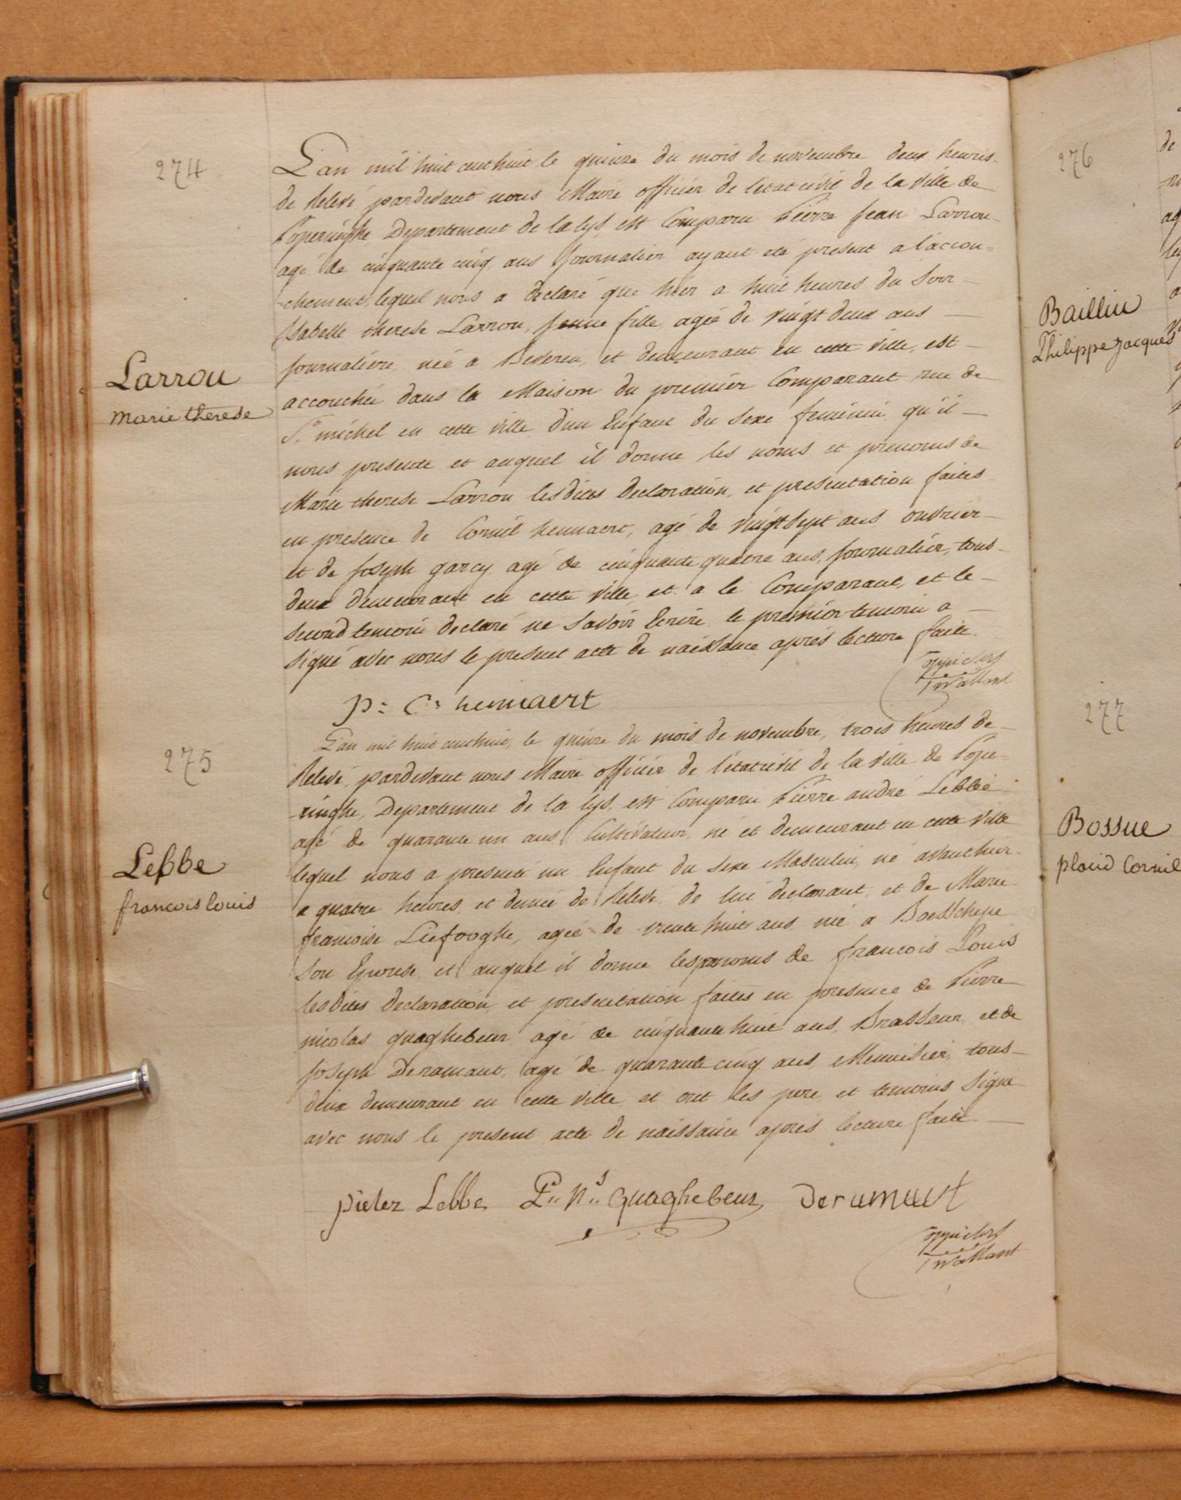 274
L'an mil huit cent huit le quinze du mois de novembre deux heures
de Relevé pardevant nous Maire officier de l'etat civil de la ville de
Poperinghe Departement de la Lys, est Comparu Pierre Jean Larrou
agé de cinquante cinq ans journalier ayant été present a l'accou=
=chement, lequel nous a declaré que hier a huit heures du soir
Isabelle therese Larrou, jeune fille, agée de vingt deux ans —
journaliere, née a Beveren, et demeurant en cette ville, est —
accouchée dans la Maison du premier Comparant rue de
St. michel en cette ville d'un Enfant du sexe feminin, qu'il —
nous presente et auquel il donne les noms et prenoms de
Marie therese Larrou lesdites declaration, et presentation faites
en presence de Cornil hennaert, agé de vingt sept ans ouvrier —
et de Joseph garcy agé de cinquante quatre ans, journalier, tous
deux demeurant en cette ville et a le Comparant, et le —
second temoin declaré ne savoir Ecrire, le premier temoin a —
signé avec nous le present acte de naissance après lecture faite.
Larrou
marie therese
p: C: hennaert
275
L'an mil huit cent huit, le quinze du mois de novembre, trois heures de
Relevé, pardevant nous Maire officier de l'etat civil de la ville de Pope=
=ringhe, Departement de la Lys, est Comparu Pierre andre Lebbe
agé de quarante un ans, Cultivateur, né et demeurant en cette ville
lequel nous a presenté un Enfant du sexe Masculin, né avant hier
a quatre heures et demie de Relevé, de lui declarant, et de Marie
francoise Liefooghe, agée de trente huit ans, née a Boesschepe
son Epouse, et auquel il donne les prenoms de francois Louis
lesdites declaration, et presentation faites en presence de Pierre
nicolas quaghebeur agé de cinquante huit ans, Brasseur, et de
Joseph Deramaut, agé de quarante cinq ans, Menuisier, tous
deux demeurant en cette ville et ont les pere et temoins signé
avec nous le present acte de naissance après lecture faite —
Lebbe
francois louis
pieter Lebbe P: N: Quaghebeur deramaut
276
Baillieu
Philippe Jacques
277
Bossue
placid Cornil